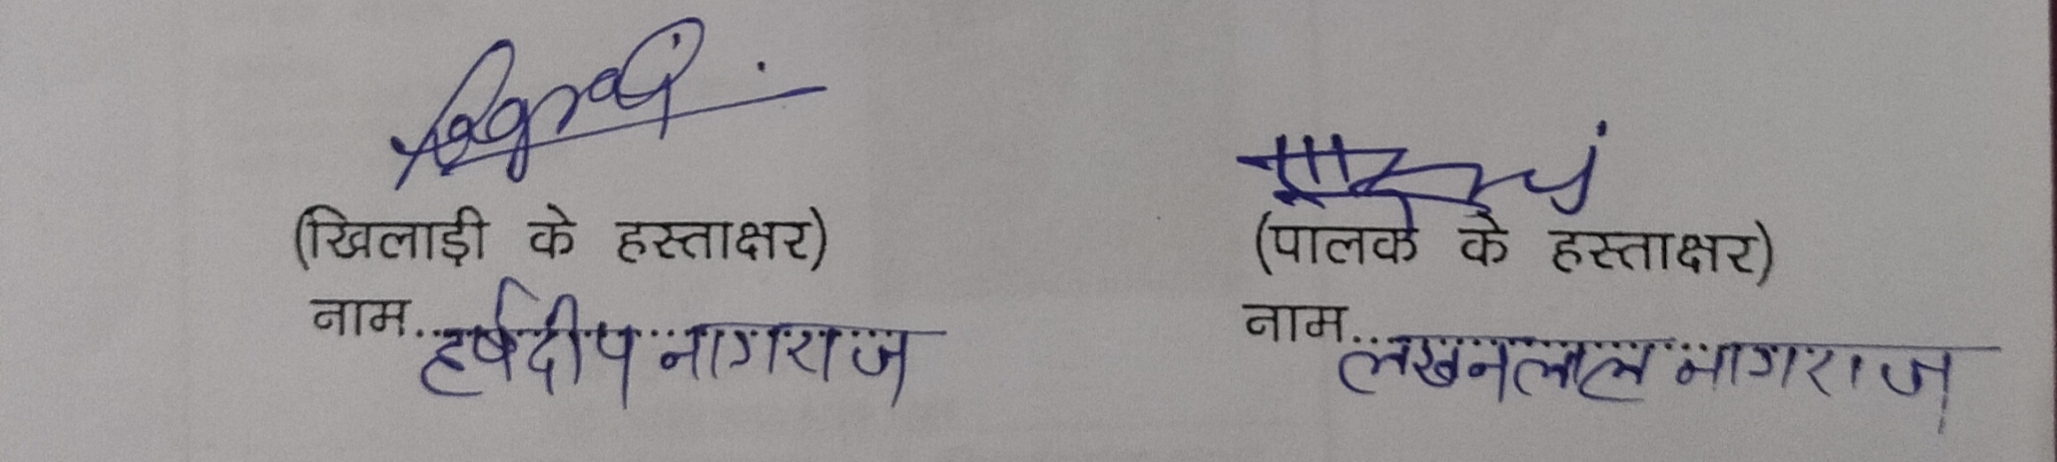 (खिलाड़ी के हस्ताक्षर)
नाम..हर्षदीप नागराज
(पालक के हस्ताक्षर)
नाम..लखनलाल नागराज